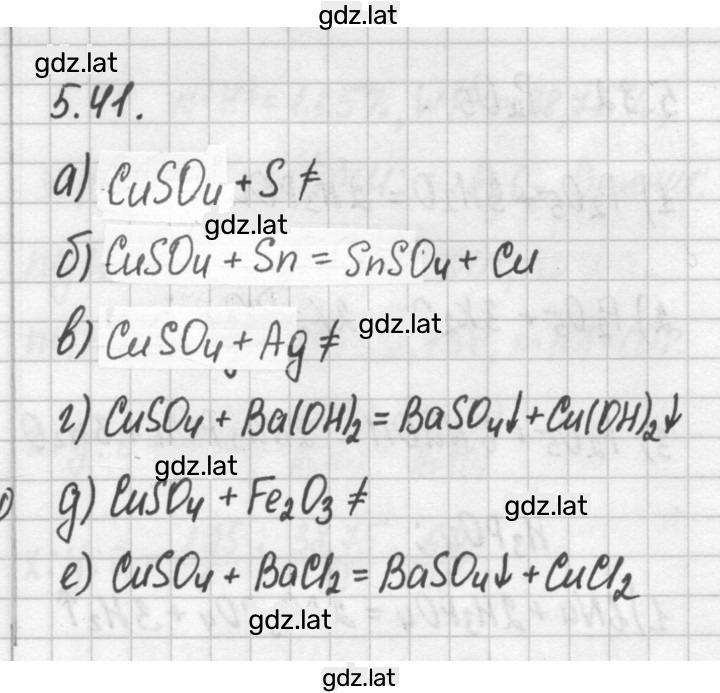 gdz.lat
gdz.lat
5.41.
а) CuSO₄ + S ≠
gdz.lat
б) CuSO₄ + Sn = SnSO₄ + Cu
gdz.lat
в) CuSO₄ + Ag ≠
г) CuSO₄ + Ba(OH)₂ = BaSO₄↓ + Cu(OH)₂↓
gdz.lat
д) CuSO₄ + Fe₂O₃ ≠
gdz.lat
е) CuSO₄ + BaCl₂ = BaSO₄↓ + CuCl₂
gdz.lat
gdz.lat